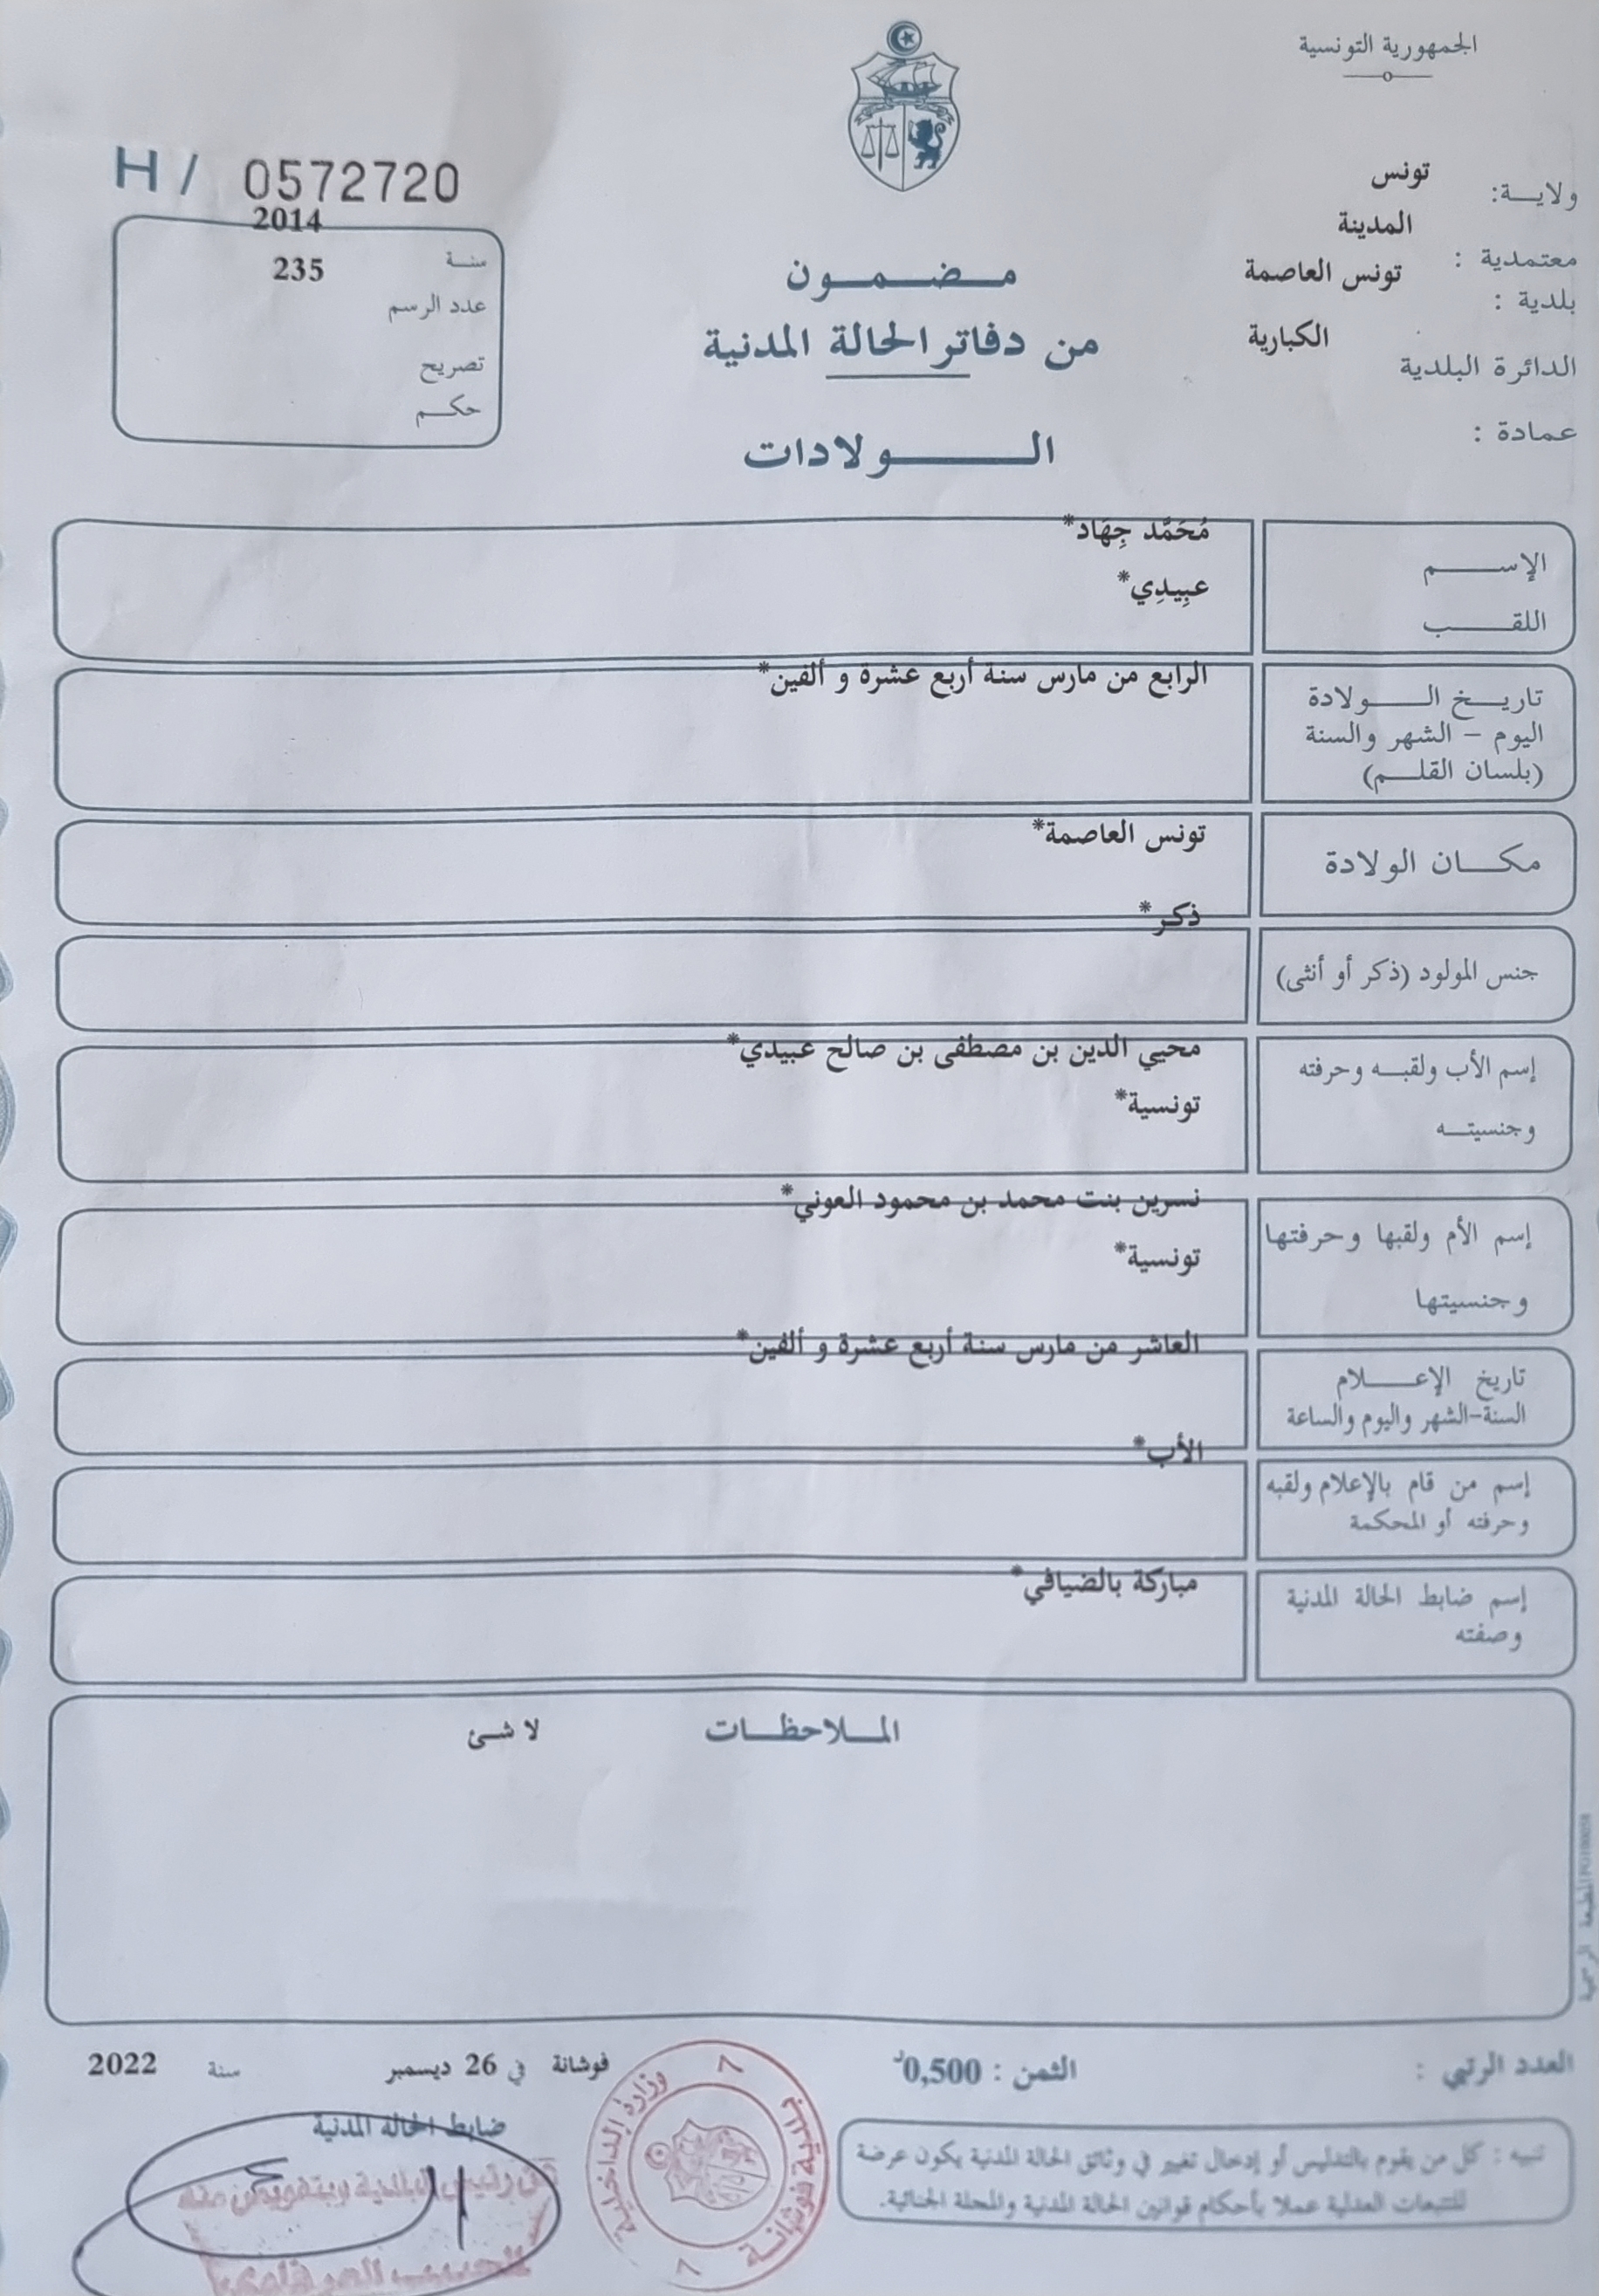 الجمهورية التونسية
ولايـــة: تونس
معتمدية : المدينة
بلدية : تونس العاصمة
الدائرة البلدية الكبارية
عمادة :
H / 0572720
سنـة 2014
عدد الرسم 235
تصريح
حكــم
مـــضـــمـــون
من دفاتر الحالة المدنية
الـــــــولادات
الإســــــم مُحَمَّد جِهَاد*
اللقــــــب عبِيدِي*
تاريـــخ الـــــولادة الرابع من مارس سنة أربع عشرة و ألفين*
اليوم – الشهر والسنة
(بلسان القلـــم)
مكـــان الولادة تونس العاصمة*
جنس المولود (ذكر أو أنثى) ذكر*
إسم الأب ولقبـــه وحرفته محيي الدين بن مصطفى بن صالح عبيدي*
وجنسيتـــه تونسية*
إسم الأم ولقبها وحرفتها نسرين بنت محمد بن محمود العوني*
وجنسيتها تونسية*
تاريخ الإعـــــلام العاشر من مارس سنة أربع عشرة و ألفين*
السنة-الشهر واليوم والساعة
إسم من قام بالإعلام ولقبه الأب*
وحرفته أو المحكمة
إسم ضابط الحالة المدنية مباركة بالضيافي*
وصفته
المــلاحظــات لا شئ
المطبعة الرسمية
العدد الرتبي :
الثمن : 0,500د
فوشانة في 26 ديسمبر سنة 2022
ضابط الحالة المدنية
عن رئيس البلدية وبتفويض منه
وزارة الداخلية
بلدية فوشانة
7
7
تنبيه : كل من يقوم بالتدليس أو إدخال تغيير في وثائق الحالة المدنية يكون عرضة
للتتبعات العدلية عملا بأحكام قوانين الحالة المدنية والمجلة الجنائية.